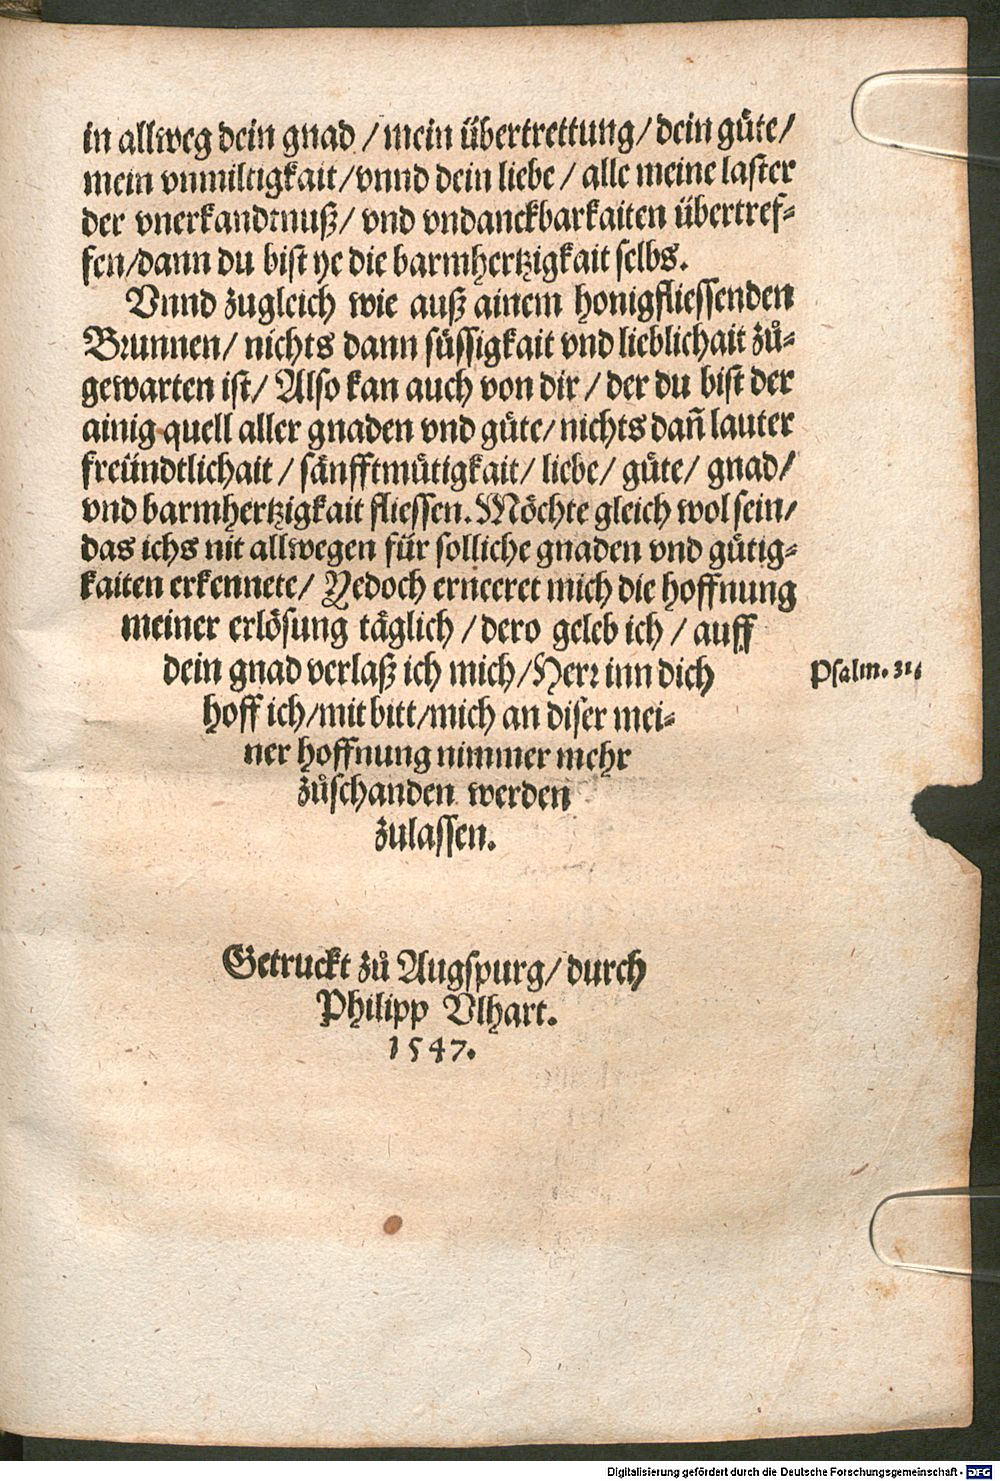 in allweg dein gnad / mein übertrettung / dein güte /
mein vnmiltigkait / vnnd dein liebe / alle meine laster
der vnerkandtnuß / vnd vndanckbarkaiten übertref⸗
fen / dann du bist ye die barmhertzigkait selbs.
Vnnd zugleich wie auß ainem honigfliessenden
Brunnen / nichts dann süssigkait vnd lieblichait zů⸗
gewarten ist / Also kan auch von dir / der du bist der
ainig quell aller gnaden vnd güte / nichts dañ lauter
freündtlichait / sänfftmütigkait / liebe / güte / gnad /
vnd barmhertzigkait fliessen. Möchte gleich wol sein /
das ichs nit allwegen für solliche gnaden vnd gütig⸗
kaiten erkennete / Yedoch erneeret mich die hoffnung
meiner erlösung täglich / dero geleb ich / auff
dein gnad verlaß ich mich / Herr inn dich
Psalm. 31.
hoff ich / mit bitt / mich an diser mei⸗
ner hoffnung nimmer mehr
zůschanden werden
zulassen.
Getruckt zů Augspurg / durch
Philipp Vlhart.
1547.
Digitalisierung gefördert durch die Deutsche Forschungsgemeinschaft - DFG